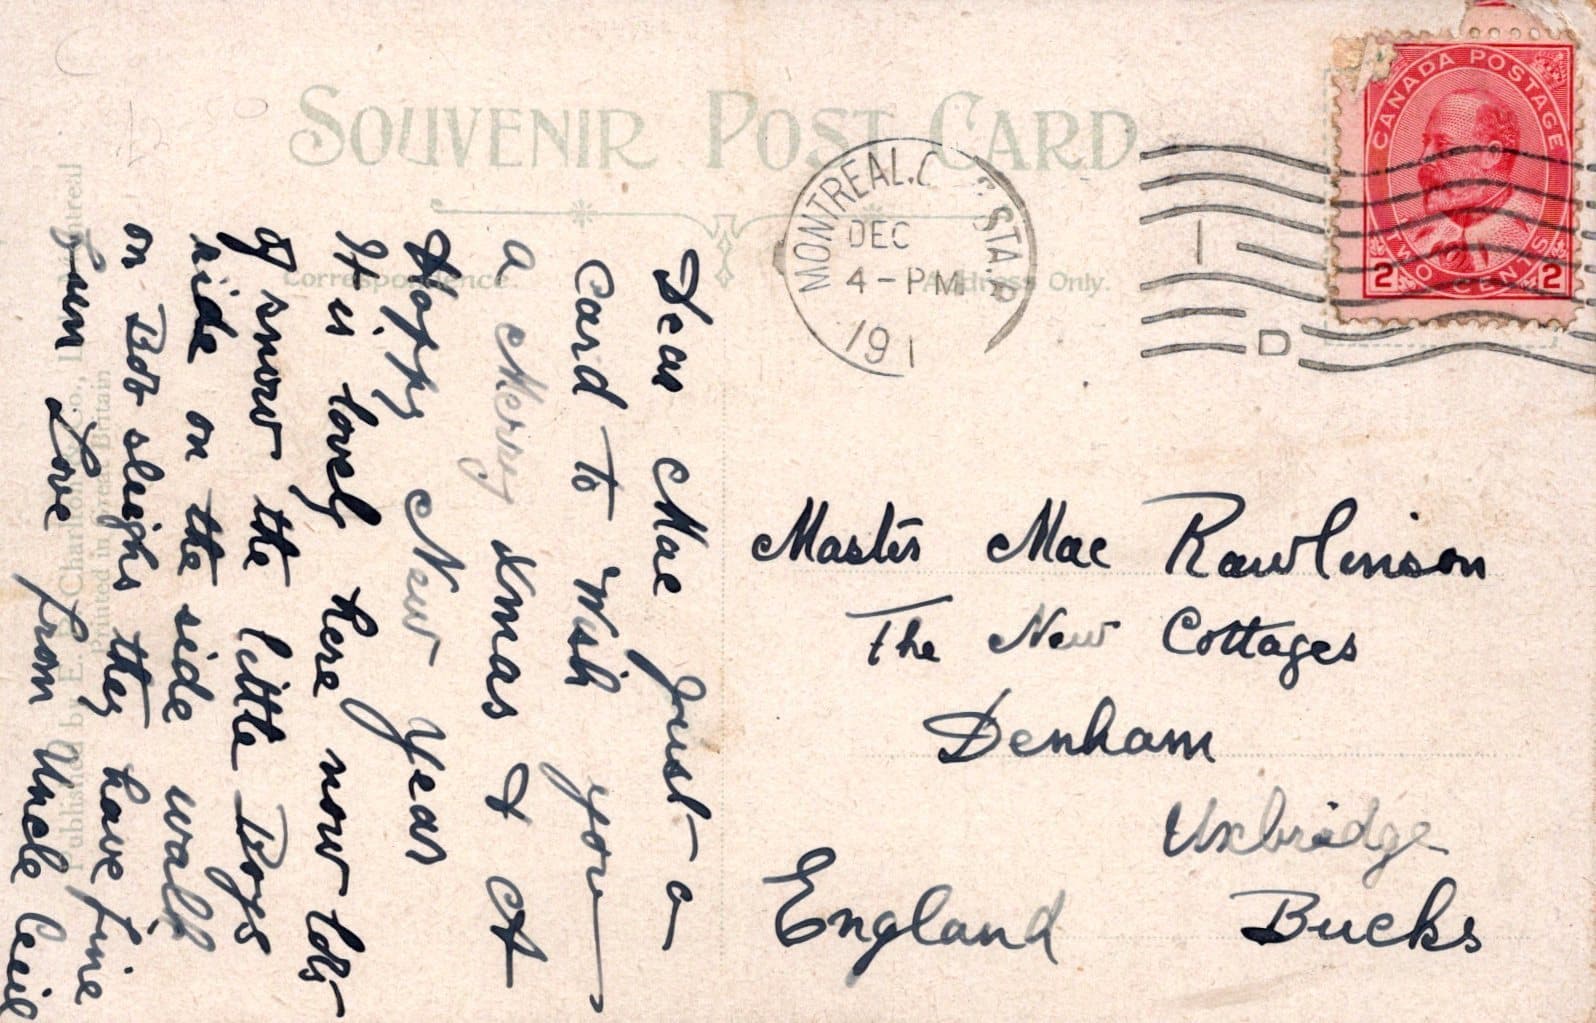 SOUVENIR POST CARD
Correspondence.
Address Only.
CANADA POSTAGE
TWO CENTS
2 2
MONTREAL.
STA.
DEC
4-PM
191
1
D
Dear Mac Just a
Card to Wish you
a Merry Xmas & A
Happy New Year
It is lovely here now lots
of snow the little Boys
ride on the side walk
on Bob sleighs they have fine
Love from Uncle Cecil
Master Mac Rawlinson
The New Cottages
Denham
Uxbridge
England Bucks
Published by E. P. Charlton & Co., Montreal
Printed in Great Britain